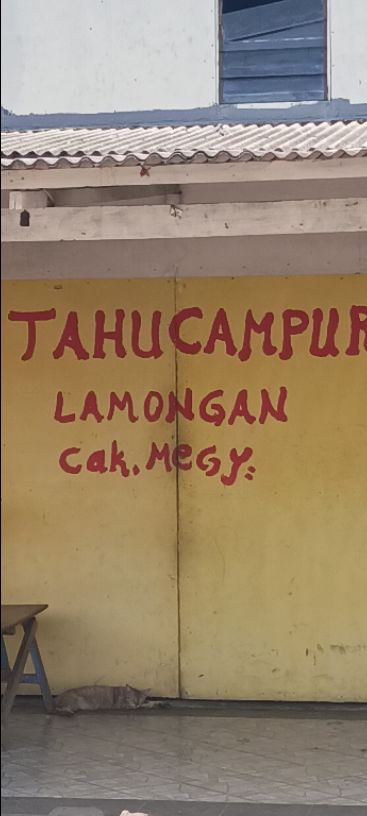 TAHU CAMPUR
LAMONGAN
Cak. MeGy.